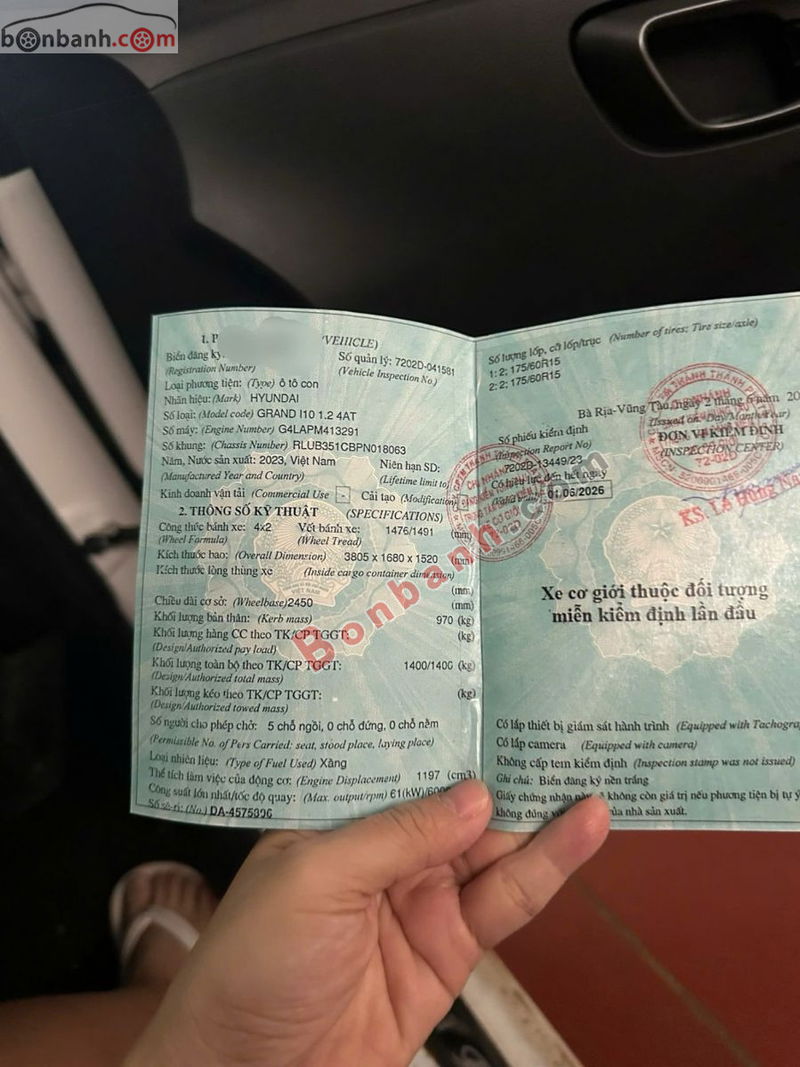 bonbanh.com
1. P (VEHICLE)
Biển đăng ký:
(Registration Number)
Số quản lý: 7202D-041581
(Vehicle Inspection No.)
Loại phương tiện: (Type) ô tô con
Nhãn hiệu: (Mark) HYUNDAI
Số loại: (Model code) GRAND I10 1.2 4AT
Số máy: (Engine Number) G4LAPM413291
Số khung: (Chassis Number) RLUB351CBPN018063
Năm, Nước sản xuất: 2023, Việt Nam
(Manufactured Year and Country)
Niên hạn SD:
(Lifetime limit to)
Kinh doanh vận tải (Commercial Use) - Cải tạo (Modification)
2. THÔNG SỐ KỸ THUẬT (SPECIFICATIONS)
Công thức bánh xe: 4x2
(Wheel Formula)
Vết bánh xe: 1476/1491 (mm)
(Wheel Tread)
Kích thước bao: (Overall Dimension) 3805 x 1680 x 1520 (mm)
Kích thước lòng thùng xe (Inside cargo container dimension)
(mm)
Chiều dài cơ sở: (Wheelbase) 2450 (mm)
Khối lượng bản thân: (Kerb mass) 970 (kg)
Khối lượng hàng CC theo TK/CP TGGT: (kg)
(Design/Authorized pay load)
Khối lượng toàn bộ theo TK/CP TGGT: 1400/1400 (kg)
(Design/Authorized total mass)
Khối lượng kéo theo TK/CP TGGT: (kg)
(Design/Authorized towed mass)
Số người cho phép chở: 5 chỗ ngồi, 0 chỗ đứng, 0 chỗ nằm
(Permissible No. of Pers Carried: seat, stood place, laying place)
Loại nhiên liệu: (Type of Fuel Used) Xăng
Thể tích làm việc của động cơ: (Engine Displacement) 1197 (cm3)
Công suất lớn nhất/tốc độ quay: (Max. output/rpm) 61(kW)/6000
Số sê-ri: (No.) DA-4575936
Số lượng lốp, cỡ lốp/trục (Number of tires; Tire size/axle)
1: 2; 175/60R15
2: 2; 175/60R15
Bà Rịa-Vũng Tàu, ngày 2 tháng 6 năm 20
(Issued on: Day/Month/Year)
Số phiếu kiểm định
(Inspection Report No)
7202D-13449/23
ĐƠN VỊ KIỂM ĐỊNH
(INSPECTION CENTER)
Có hiệu lực đến hết ngày
01/06/2026
KS. Lê Hùng
Xe cơ giới thuộc đối tượng
miễn kiểm định lần đầu
Có lắp thiết bị giám sát hành trình (Equipped with Tachogra
Có lắp camera (Equipped with camera)
Không cấp tem kiểm định (Inspection stamp was not issued)
Ghi chú: Biển đăng ký nền trắng
Giấy chứng nhận không còn giá trị nếu phương tiện bị tự ý
không đúng của nhà sản xuất.
Bonbanh.com